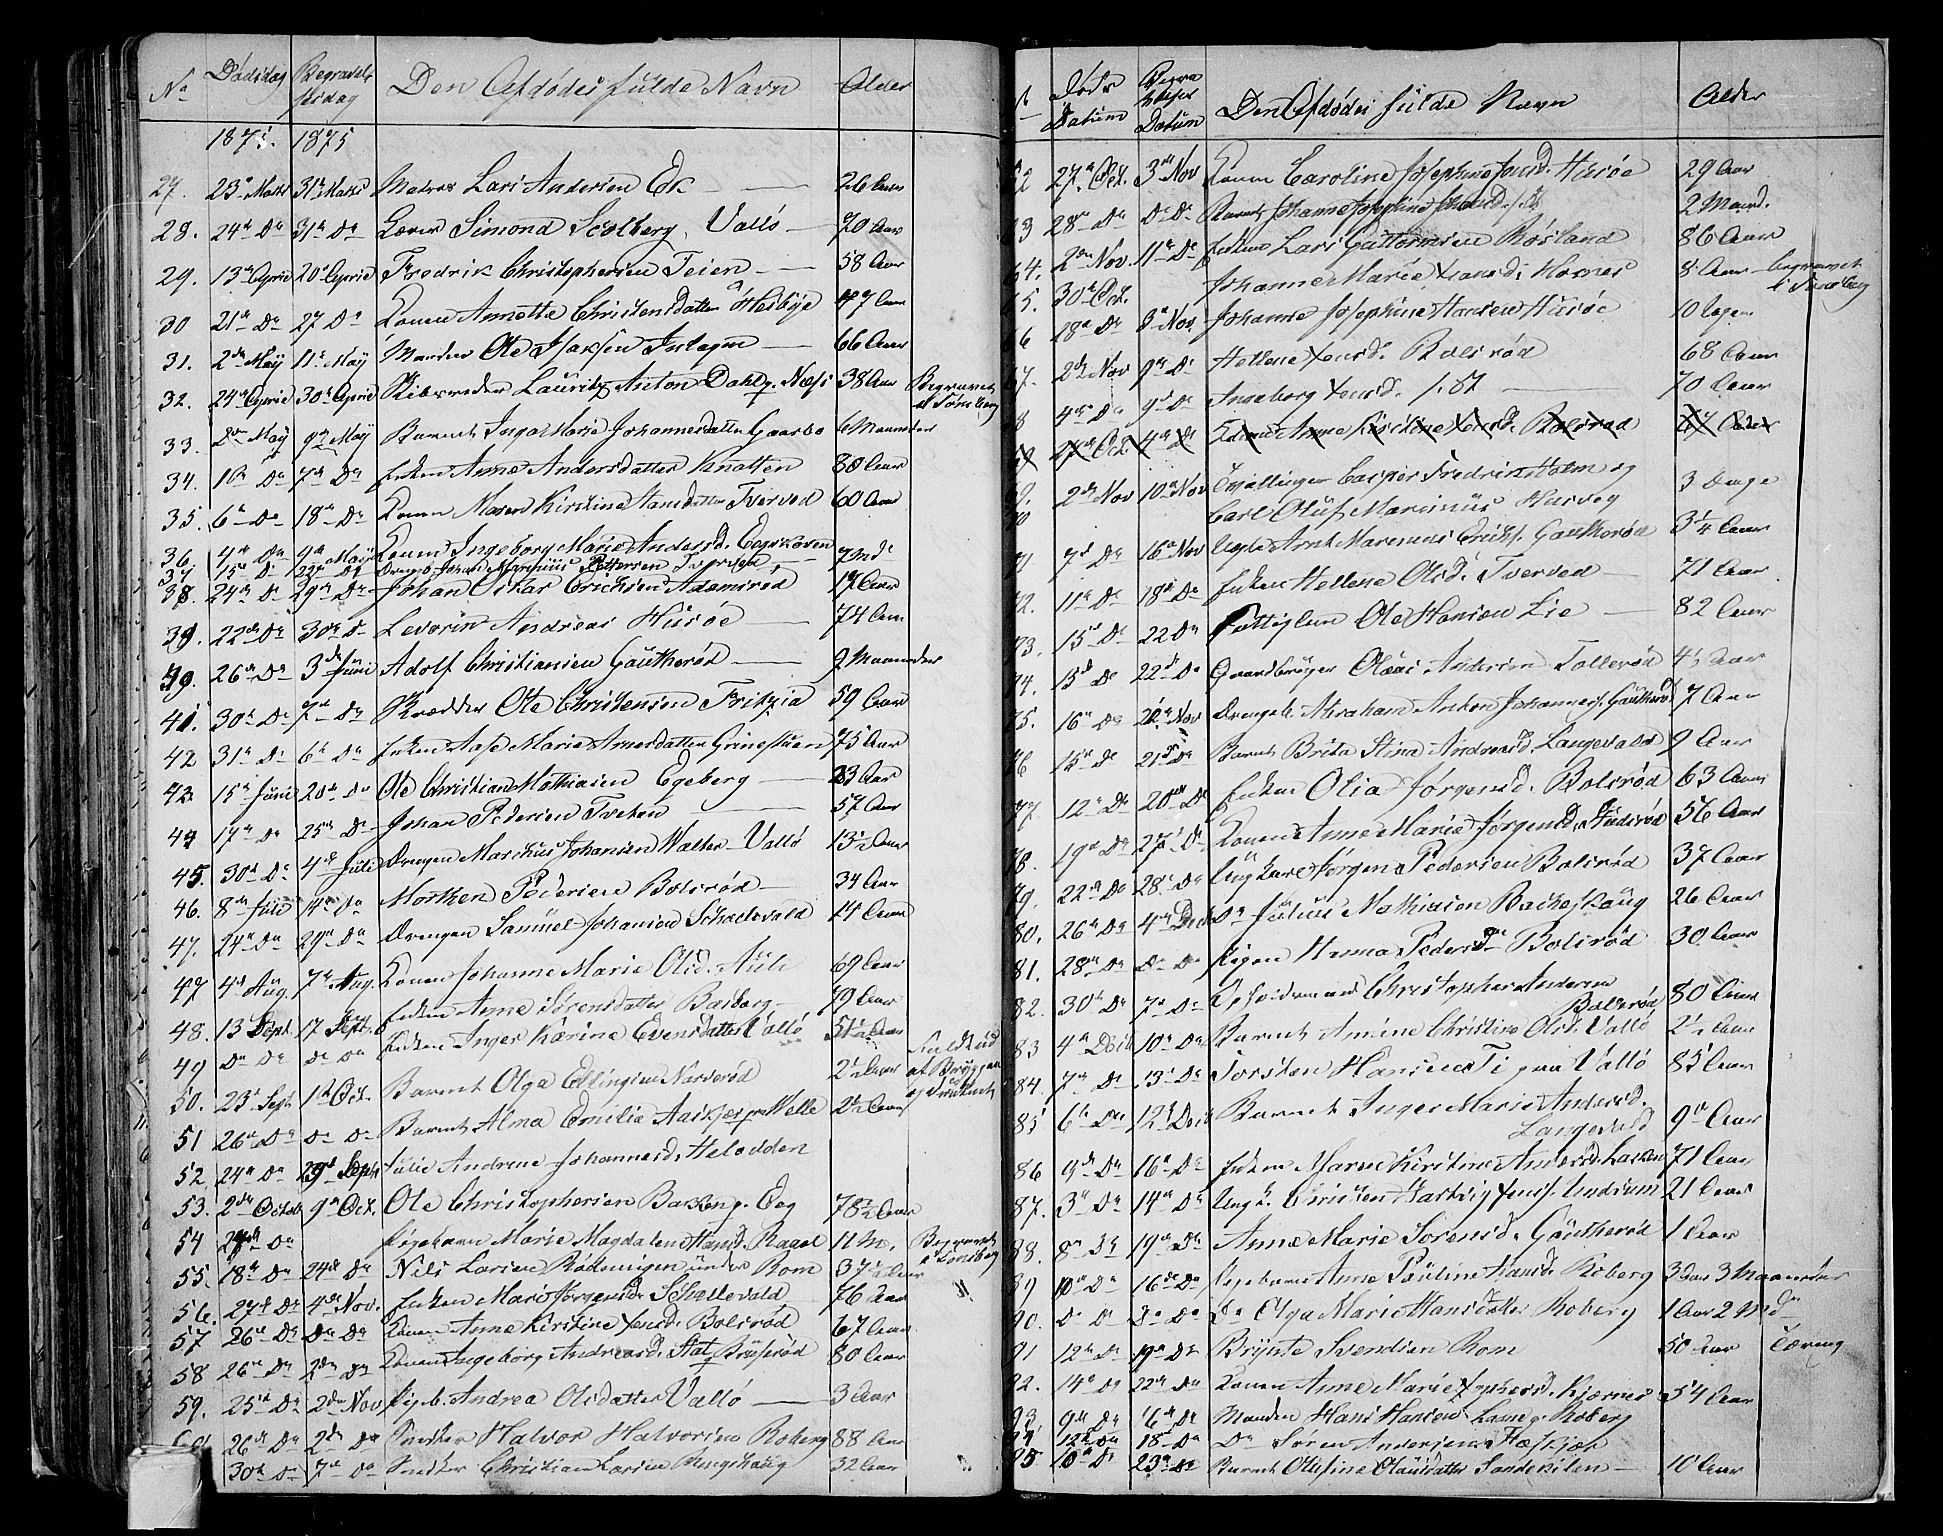 No Dødsdag Begravelsesdag Den Afdødes fulde Navn Alder
1875. 1875
27. 23de Marts 31te Marts Matros Lars Andersen Ek 26 Aar
28. 24de Do 31te Do Lærer Simond Solberg, Vallö 70 Aar
29. 13de April 20de April Fredrik Christophersen Teien 58 Aar
30 21de Do 27 Do Konen Annette Christensdatter Hesbye 47 Aar
31. 2den May 11te May Manden Ole Isaksen Intagen 66 Aar
32. 24de April 30te April Skibsreder Lauritz Anton Dahl g. Næss 38 Aar Begravet i Tønsberg
33. Dn May 9de May Barnet Inga Marie Johannesdatter Gaarbo 6 Maaneder
34. 1ste Do 7de Do Enken Anne Andersdatter Knatten 80 Aar
35. 6te Do 18de Do Konen Maren Kirstine Hansdatter Tverved 60 Aar
36. 4de Do 9de May Konen Ingeborg Marie Andersd. Eegskoven
37 15de Do 22de Do Drengeb. Johan Marinius Pettersen 7 Md.
38. 24de Do 29de Do Johan Oskar Erichsen Adamsrød 17 Aar
39. 22de Do 30te Do Levorin Andreas Husøe 74 Aar
40. 26de Do 3de Juni Adolf Christiansen Gautherød 9 Maaneder
41. 30te Do 7de Do Skrædder Ole Christensen 59 Aar
42 31te Do 6te Do Enken Aase Marie Amesdatter Grinestuen 75 Aar
43. 15de Juni 20de Do Ole Christian Mathiasen Egeberg 23 Aar
44 17de Do 25de Do Johan Pedersen Tveten 57 Aar
45. 30te Do 4de Juli Drengen Marthius Johansen Walter Vallö 13½ Aar
46. 8de Juli 14de Do Morthen Pedersen Bolsrød 34 Aar
47. 24de Do 29de Do Drengen Samuel Johansen Skaelsvald 14 Aar
47 4de Aug. 7de Aug. Konen Johanne Marie Olsd. Auli 69 Aar
48. 13 Sept. 17 Sept. Enken Anne Sørensdatter Basberg 79 Aar
49 Do Do Do Do Enken Inger Karine Evensdatter Vallö 51½ Aar
50. 23de Sept 1ste Oct. Barnet Olga Ellingsen Narverød 2½ Aar Faldt ud af Bryggen og druknet
51 26de Do Do Do Barnet Alma Emilia Aaskjær pr Melle 2½ Aar
52. 24de Do 29de Septr Julie Andrine Johannesd. Helodden
53. 2den Octob 9de Oct. Ole Christophersen Bakken g. Eeg 78½ Aar
54 Do Pigebarn Marie Magdalen Hansd. Ragel 11 M. Begravet i Tønsberg
55. 18de Do 24de Do Nils Larsen Rødningen under Rom 37½ Aar
56. 27de Do 4de Nov. Enken Maria Jørgensd. Skellevald 76 Aar
57 26de Do Do Do Konen Anne Kirstine Jensd. Bolsrød 67 Aar
58 26de Do 2den Do Konen Ingeborg Andreasd. Stat Bruserød 80 Aar
59. 25de Do 2den Nov Pigeb. Andrea Olsdatter Vallö 3 Aar
26de Do 2den Do Snedker Halvor Halvorsen Roberg 88 Aar
30te Do 7de Do Snedker Christian Larsen Ringshaug 32 Aar
Døds Datum Begravelses Datum Den Afdødes fulde Navn Alder
62 27de Oct. 3die Nov Konen Caroline Josephine Jonsd. Husøe 29 Aar
63 28de Do Do Do Barnet Johanne Josephine 2 Maand.
64. 2den Nov. 11te Do Enkem Lars Guttormsen Røsland 86 Aar
65. 30te Oct. Johanne Marie Hansd. 8 Aar begravet i Tønsberg
66 18de Do 3de Nov. Johanne Josephine Hansen Husøe 10 Dage
67. 2de Nov 9de Do Hellene Jensd. Bolsrød 68 Aar
68 4de Do 9de Do Ingeborg Jensd. 70 Aar
59 27de Oct 4de Do Konen Anne Kirstine Jensd. Bolsrød 67 Aar
69. 2de Nov 10de Nov Tvillinger Casper Fredrik Holm og
70 Carl Oluf Marinius Husvey 3 Dage
71 7de Do 16de Nov Arnt Marenius Erichs. Gautherød 3¼ Aar
72. 11te Do 18de Do Enken Hellene Olsd. Tverved 71 Aar
73. 15de Do 22 Do Fattiglem Ole Hansen Lie 82 Aar
74. 15de Do 22de Do Grundbruger Olaus Andersen Tollerød 4½ Aar
75. 16de Do 20de Nov Drengeb. Abraham Anton Johannes. Gautherød 7 Aar
76 15de Do 21de Do Barnet Brita Stina Andreasd. Langevald 9 Aar
77. 12te Do 20de Do Enken Olia Jørgensd. Bolsrød 63 Aar
78. 19de Do 27de Do Konen Anne Marie Jørgensd. 56 Aar
79. 22de Do 28de Do Ungkarl Jørgen Pedersen Bolsrød 37 Aar
80. 26de Do 4de Decb Do Julius Mathiasen Backeshaug 26 Aar
81. 28de Do Do Do Pigen Hanna Pedersd. Bolsrød 30 Aar
82. 30te Do 7de Do Christopher Andersen
Bolsrød 80 Aar
83 4de Decb 10de Do Barnet Amine Christine Olsd. Vallö 2½ Aar
84. 7de Do 13de Do Torsten Hansen Ti paa Vallö 85 Aar
85 6te Do 12te Decb Barnet Inger Marie Andersd.
Langevald 9de Aar
86 9de Do 16de Do Enken Maren Kirstine Andersd. 71 Aar
87. 3de Do 14de Do Ungk. Christen Hartvig Jens. Undrum 21 Aar
88. 8de Do 19de Do Anne Marie Sorensd. Gautherød 1 Aar
89 10de Do 16de Do Pigebarn Anne Pauline Hansd. Roberg 3 Aar 3 Maaneder
90. Do Do Do Do Do Olga Marie Hansdatter Roberg 1 Aar 2 Md
91 12te Do 19de Do Brynte Svendsen Rom 50 Aar Tæring
92. 14de Do 22de Do Konen Anne Marie Kjærnes 54 Aar
93. 9de Do 16de Do Manden Hans Hansen Roberg
94 12te Do 18de Do Do Søren Andersen
95 10de Do 23de Do Barnet Olefine Olausdatter Sandersten 10 Aar